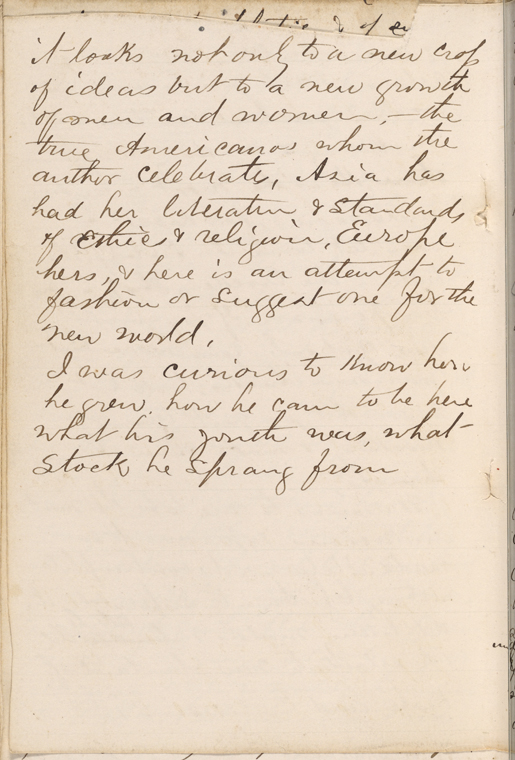 it looks not only to a new crop
of ideas but to a new growth
of men and women, – the
true Americanos whom the
author celebrates, Asia has
had her literature & standards
of ethics & religion, Europe
hers, & here is an attempt to
fashion or suggest one for the
new world.
I was curious to know how
he grew, how he came to be here
what his youth was, what
stock he sprang from